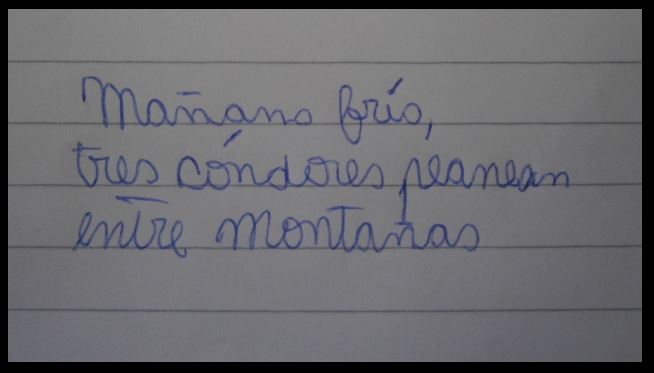 Mañana fría,
tres cóndores planean
entre montañas